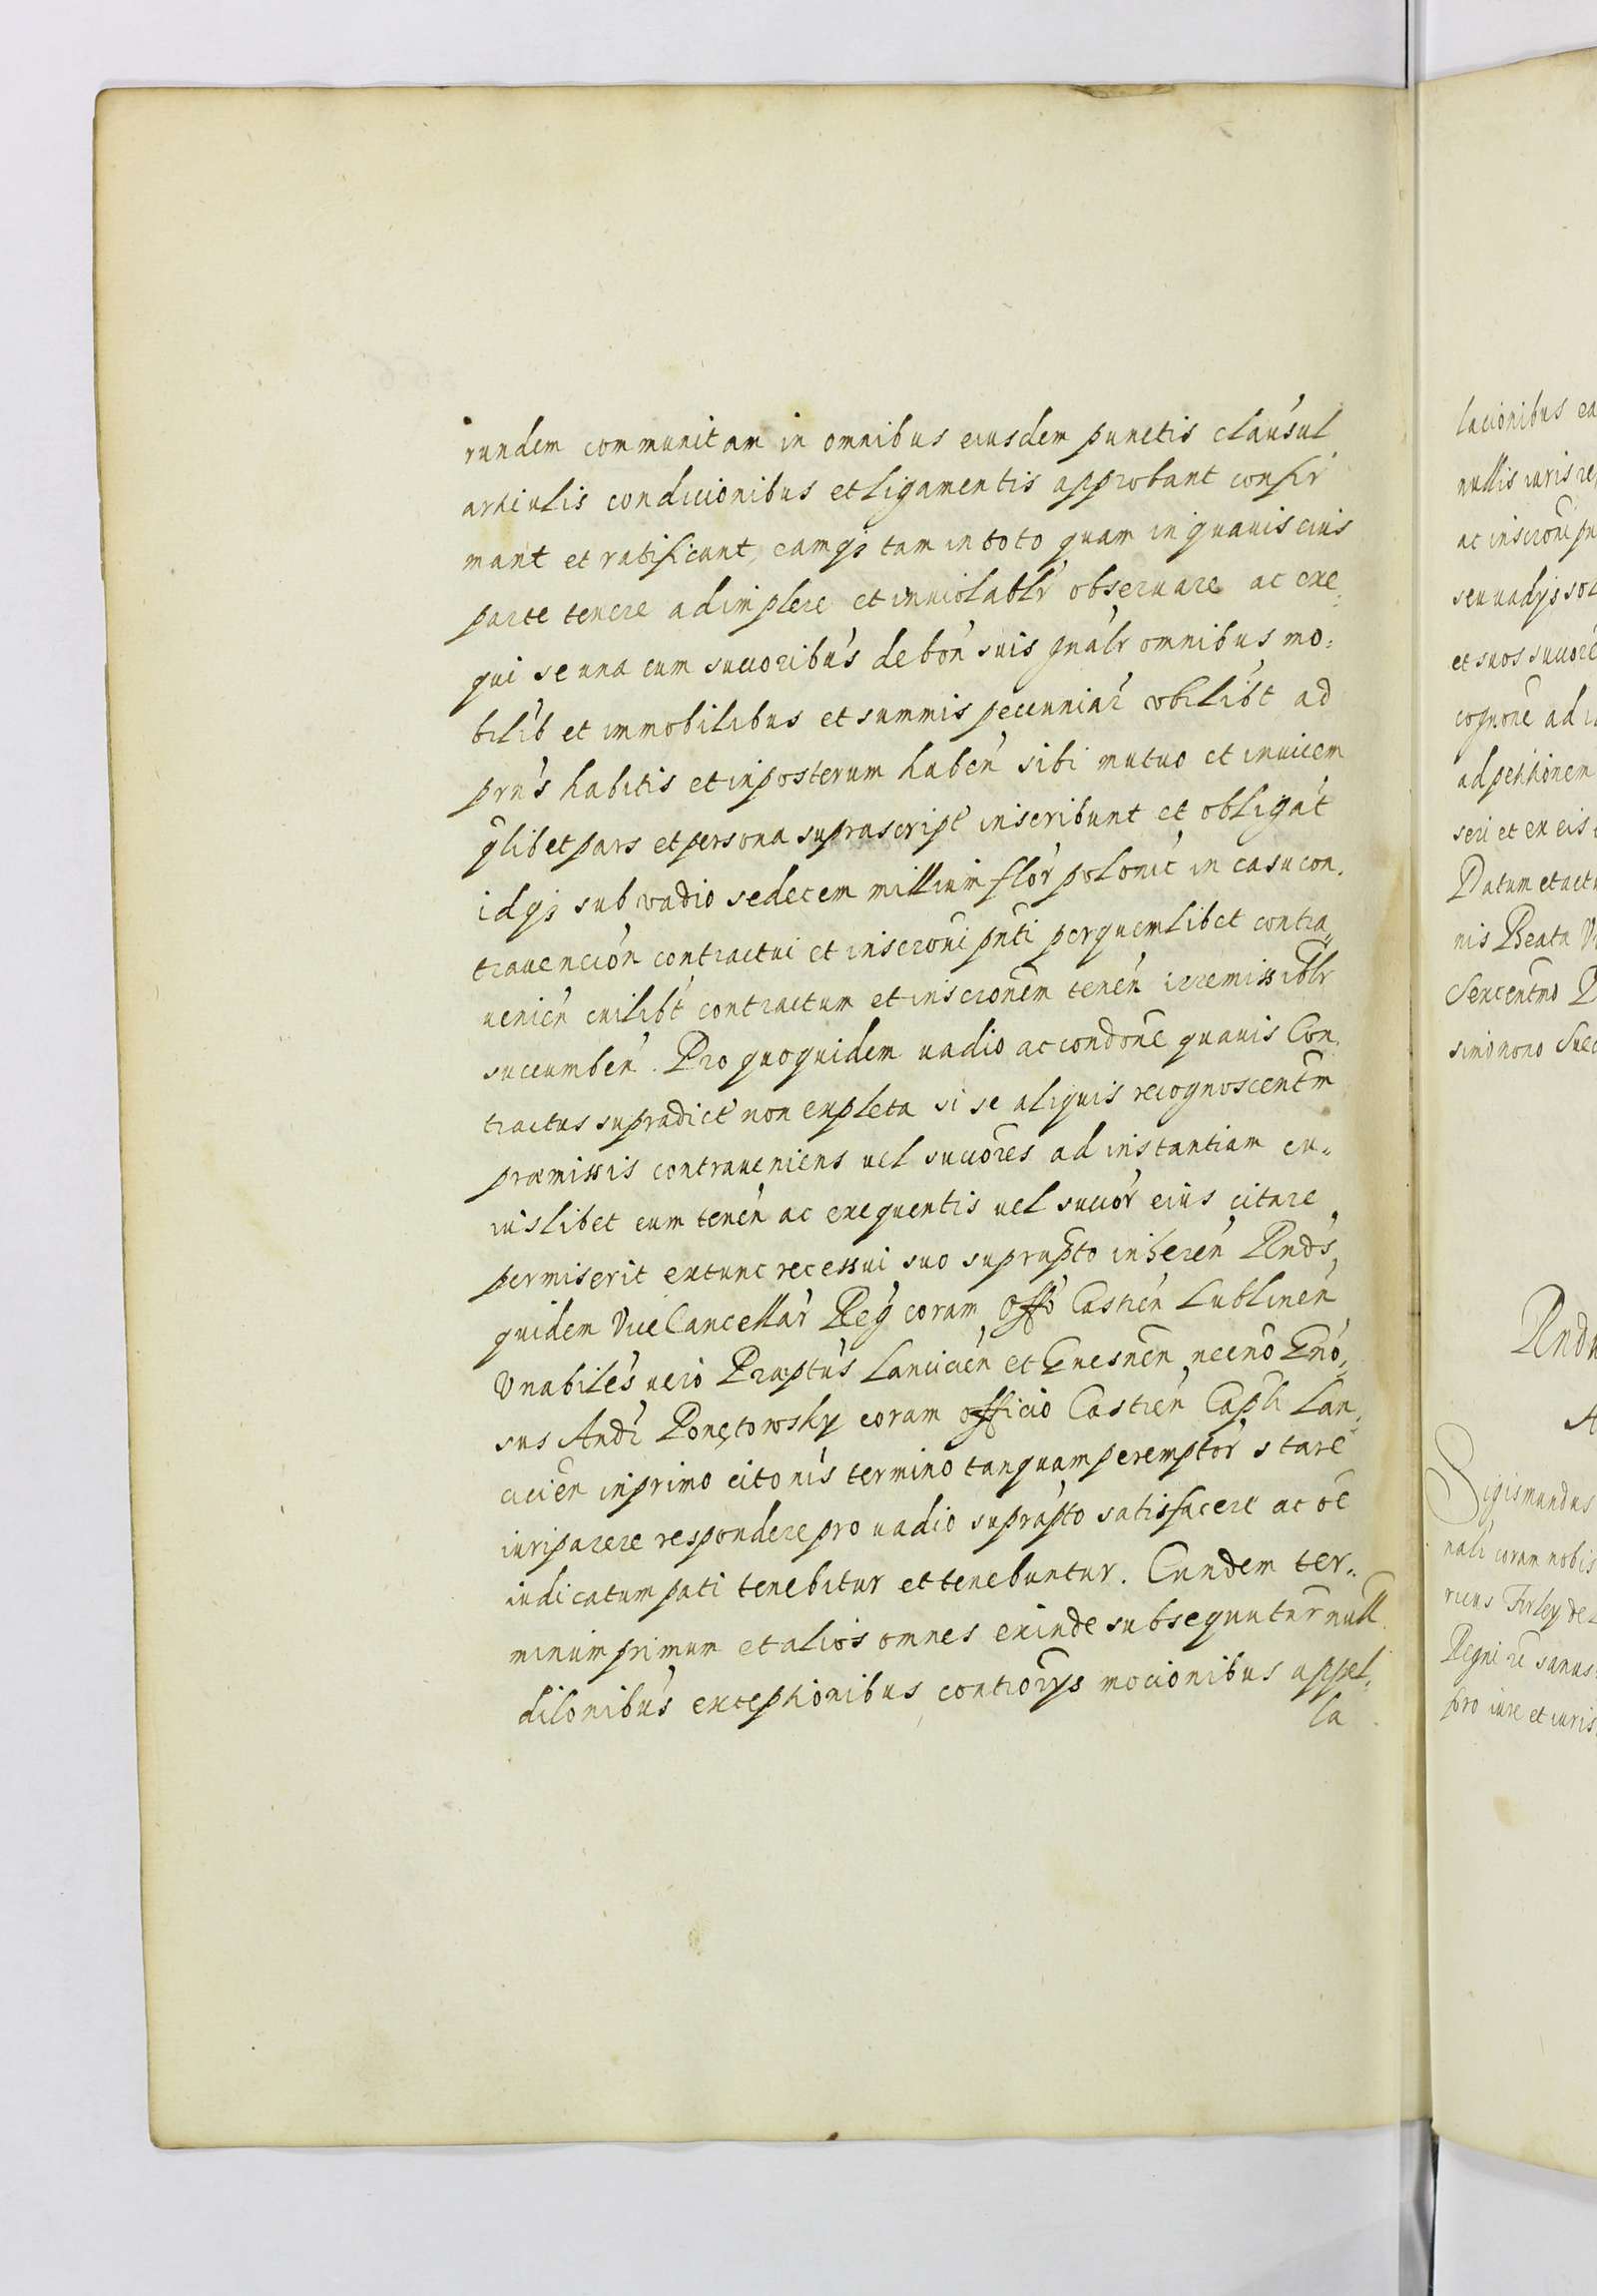 rundem communitam in omnibus eiusdem punctis clausul
articulis condicionibus et ligamentis approbant confir
mant et ratificant, eamqз tam in toto quam in quauis eius
parte tenere adimplere et inuiolablr obseruare ac exe
qui se una cum succoribus de bon suis gnalr omnibus mo:
bilib et immobilibus et summis pecuniar vbilibt ad
prns habitis et inposterum haben sibi mutuo et inuicem
qlibet pars et persona suprascript inscribunt et obligat
idqз sub vadio sedecem millium flor polonic in casu con.
trauencion contractui et inscroni pnti perquemlibet contra„
uenien cuilibt contractum et inscronem tenen irremissiblr
succumben. Pro quoquidem uadio ac condone quauis Con,
tractus supradict non expleta si se aliquis recognoscentm
præmissis contraueniens uel succores ad instantiam cu„
iuslibet eum tenen ac exequentis uel succor eius citare
permiserit extunc recessui suo suprapto inheren Rnds,
quidem ViceCancellar Reg coram Offo Castren Lublinen
Vnabiles uero Præptus Lancicien et Gnesnen necno Gno„
sus Andr Ponętowsky coram officio Castren Capli Lan,
cicien in primo citonis termino tanquam peremptor stare
iuri parere respondere pro uadio suprapto satisfacere ac oe
iudicatum pati tenebitur et tenebuntur. Eundem ter„
minum primum et alios omnes exinde subsequutur null
dilonibus exceptionibus, controrys mocionibus appel„
la
lacionibus ea
nullis iuris re
ac inscroni pn
seu uadijs sol
et suos succore
cognone ad
ad petitionem
seri et ex eis
Datum et actu
nis Beata
Sexcentmo
simo nono Suec
Sigismundus
nali coram nobis
ricus Firley de
Regni re sanus
pro iure et iuris